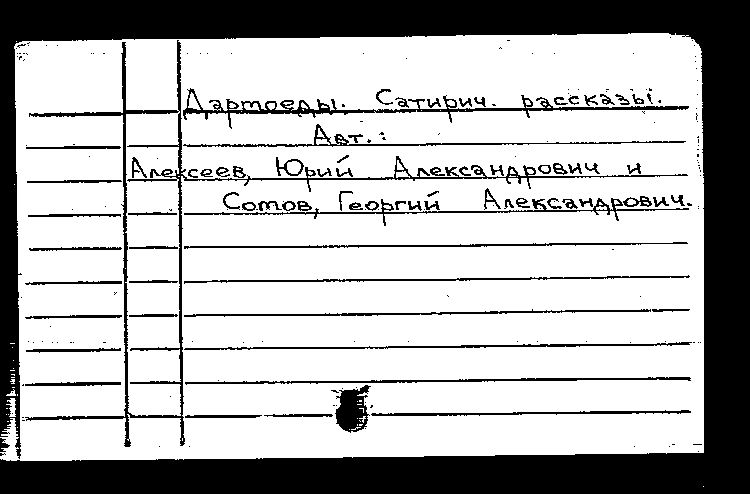 Дармоеды. Сатирич. рассказы.
Авт.:
Алексеев, Юрий Александрович и
Сотов, Георгий Александрович.